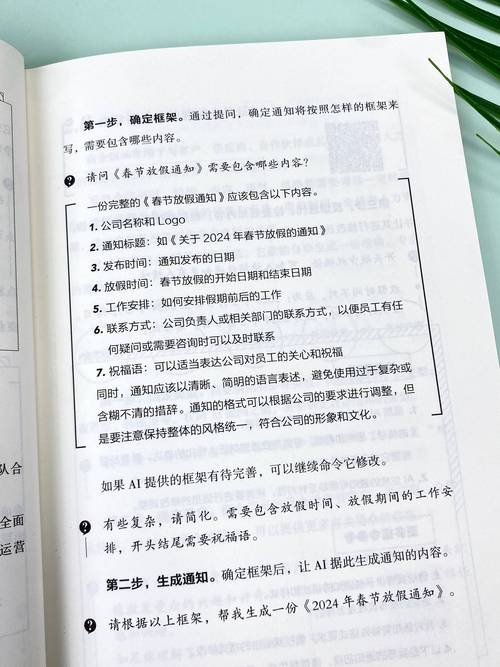 第一步，确定框架。通过提问，确定通知将按照怎样的框架来
写，需要包含哪些内容。
请问《春节放假通知》需要包含哪些内容？
一份完整的《春节放假通知》应该包含以下内容。
1. 公司名称和 Logo
2. 通知标题：如《关于 2024 年春节放假的通知》
3. 发布时间：通知发布的日期
4. 放假时间：春节放假的开始日期和结束日期
5. 工作安排：如何安排假期前后的工作
6. 联系方式：公司负责人或相关部门的联系方式，以便员工有任
何疑问或需要咨询时可以及时联系
7. 祝福语：可以适当表达公司对员工的关心和祝福
同时，通知应该以清晰、简明的语言表述，避免使用过于复杂或
含糊不清的措辞。通知的格式可以根据公司的要求进行调整，但
是要注意保持整体的风格统一，符合公司的形象和文化。
如果 AI 提供的框架有待完善，可以继续命令它修改。
有些复杂，请简化。需要包含放假时间、放假期间的工作安
排，开头结尾需要祝福语。
第二步，生成通知。确定框架后，让 AI 据此生成通知的内容。
请根据以上框架，帮我生成一份《2024 年春节放假通知》。
队合
全面
运营